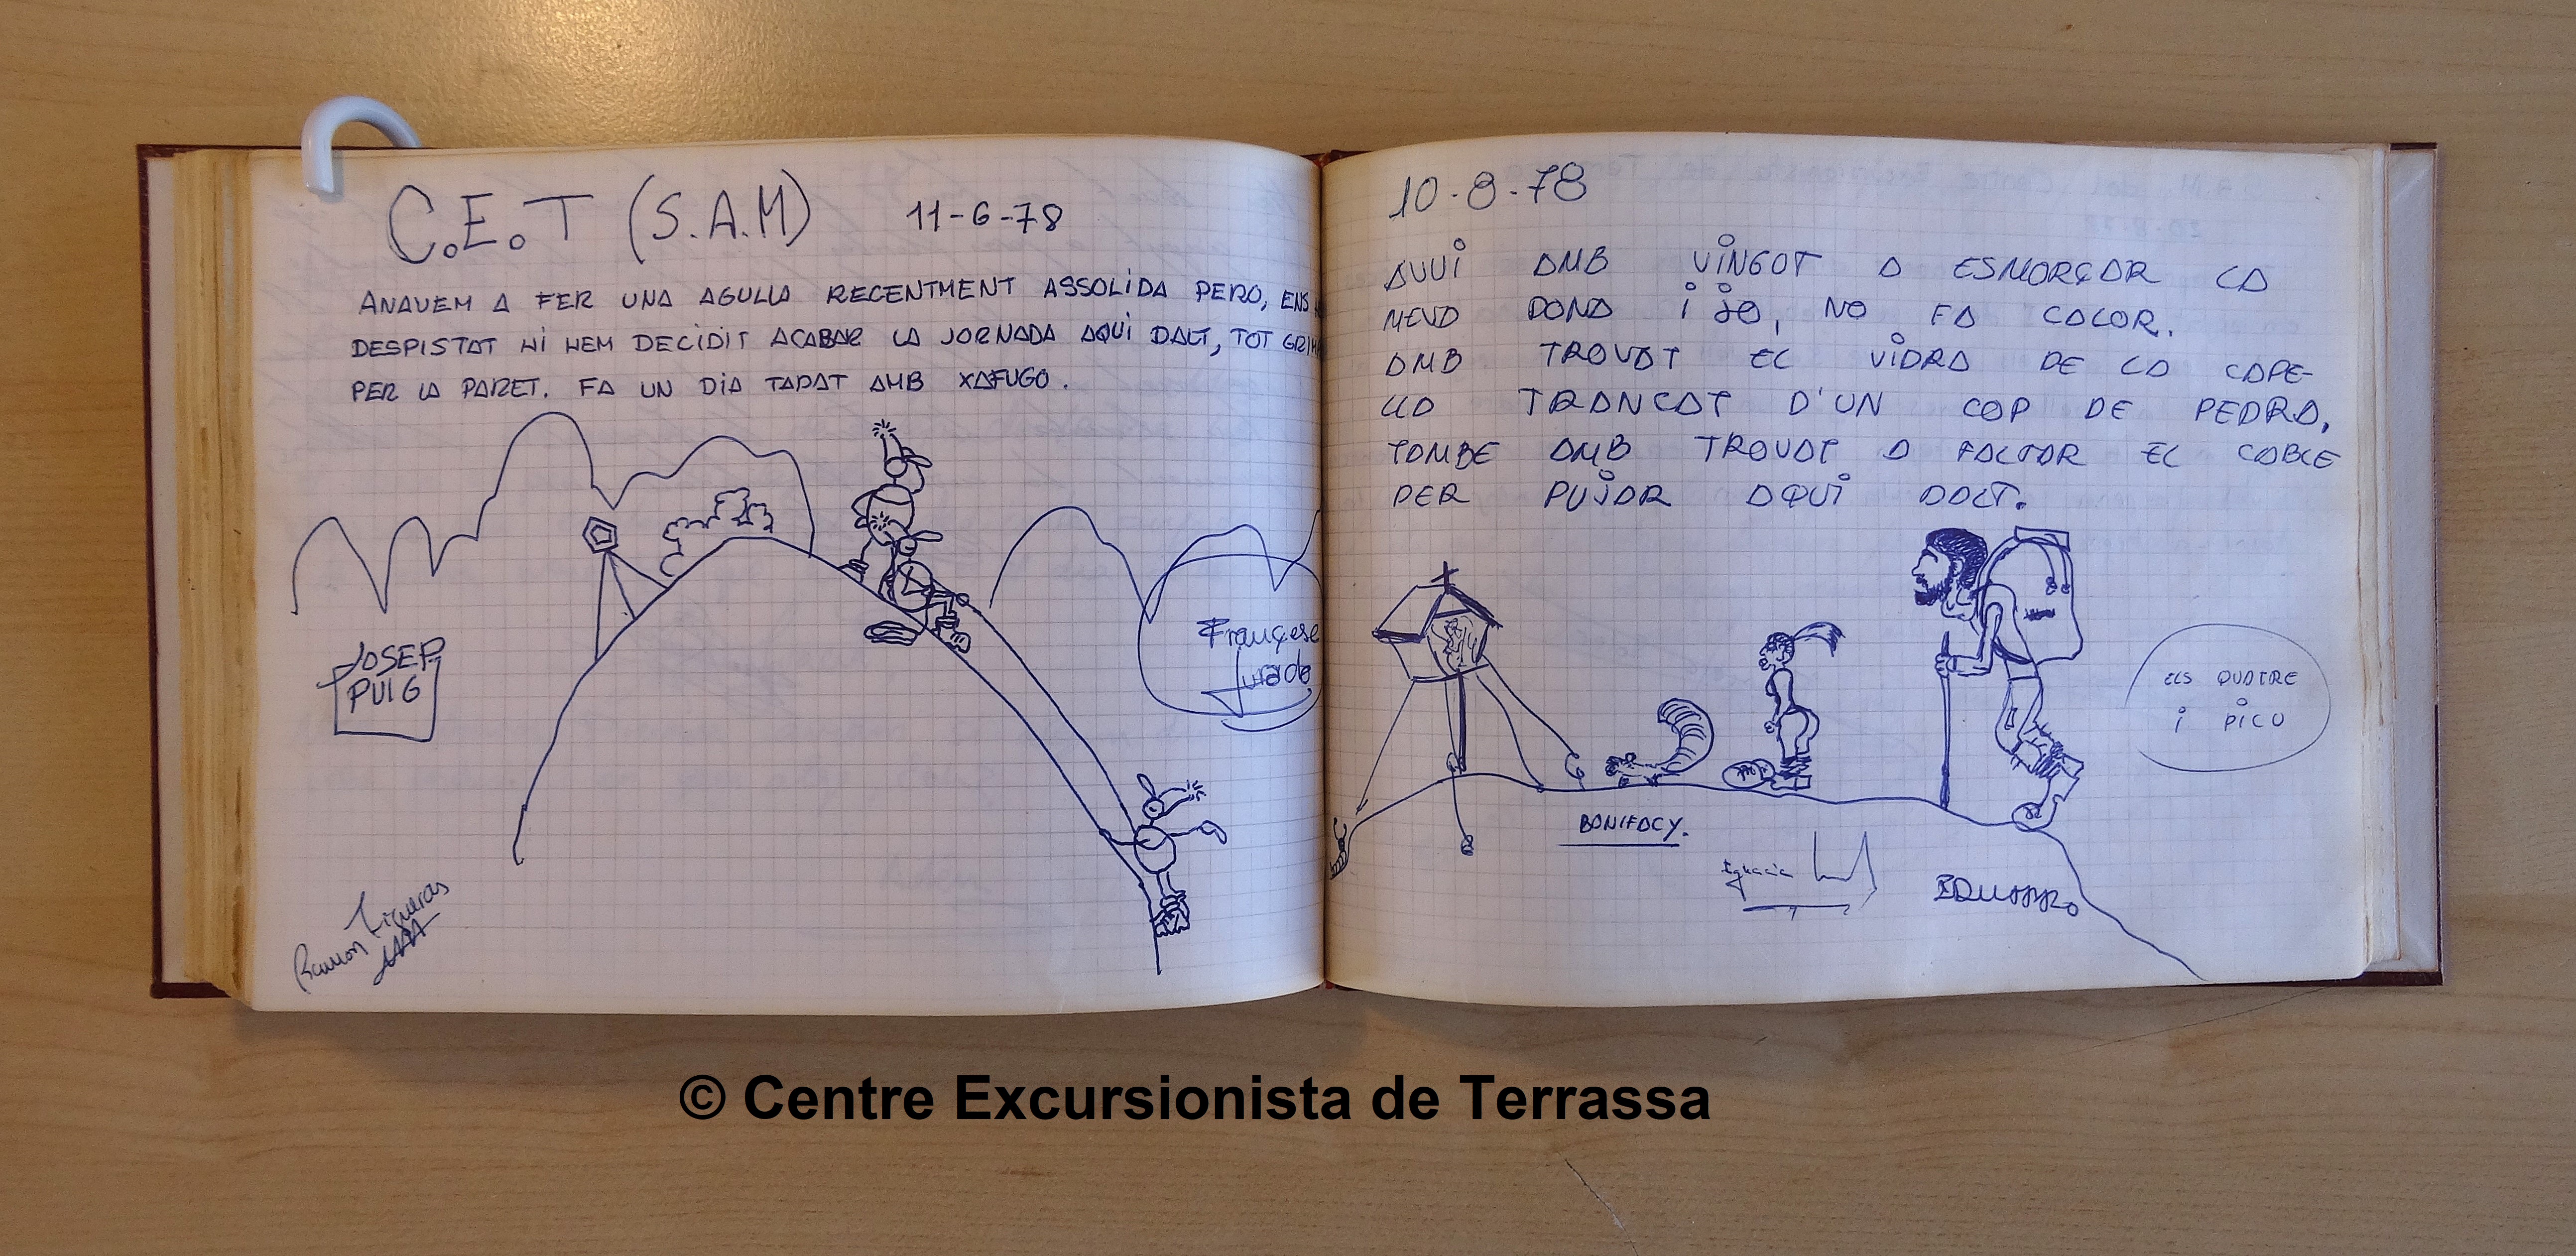 C.E.T (S.A.M) 11-6-78
ANAVEM A FER UNA AGULLA RECENTMENT ASSOLIDA PERO, ENS
DESPISTAT HI HEM DECIDIT ACABAR LA JORNADA AQUI DALT, TOT
PER LA PARET. FA UN DIA TAPAT AMB XAFUGO.
JOSEP
PUIG
Francesc
Jurado
Ramon Figueras
10-8-78
AVUI AMB VINGUT A ESMORÇAR LA
MEVA DONA I JO, NO FA CALOR.
AMB TROVAT EL VIDRA DE LA CAPE-
LLA TRANCAT D'UN COP DE PEDRA,
TAMBE AMB TROVAT A FALTAR EL CABLE
PER PUJAR AQUI DALT.
ELS QUATRE
I PICU
BONIFACY.
Ignacia
© Centre Excursionista de Terrassa